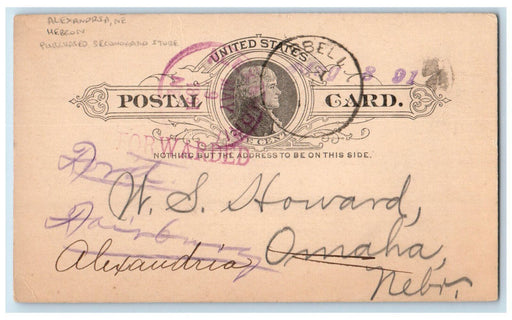 ALEXANDRIA, NE
HEBRON
PURCHASED SECONDHAND STORE
UNITED STATES
BELL
8 91
POSTAL CARD.
ONE CENT
FORWARDED
NOTHING BUT THE ADDRESS TO BE ON THIS SIDE.
W. S. Howard,
Fairbury
Omaha,
Alexandria
Nebr.